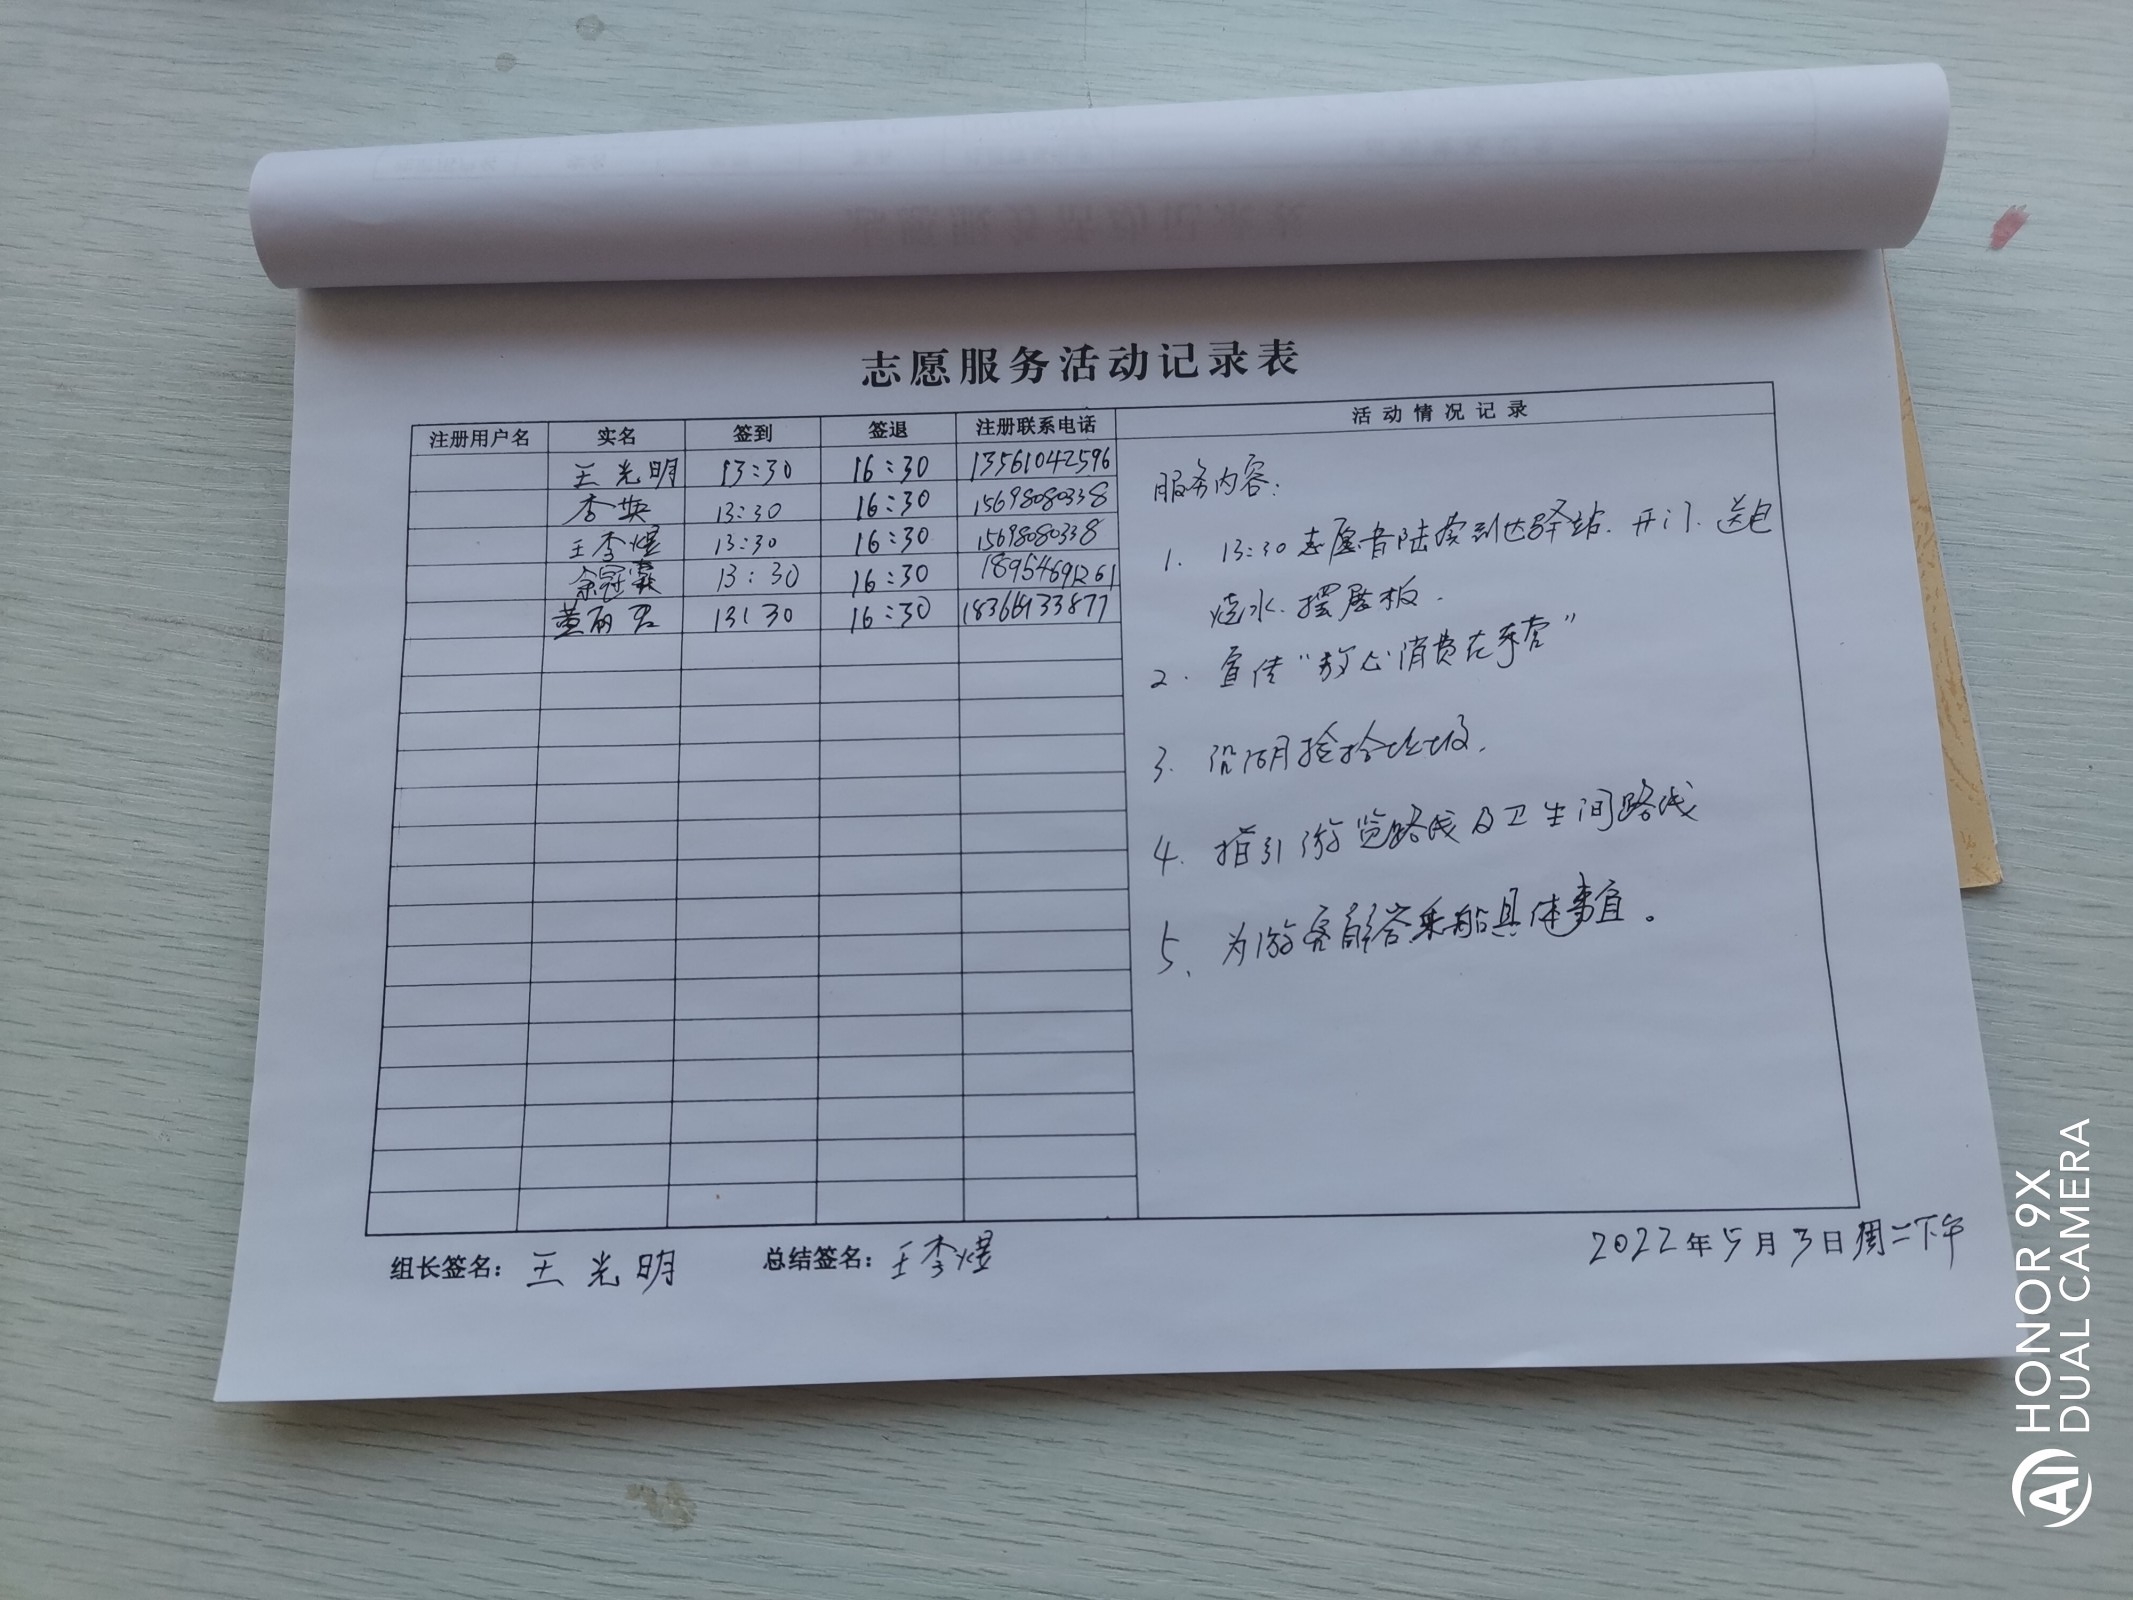 志愿服务活动记录表
注册用户名 实名 签到 签退 注册联系电话 活动情况记录
王光明 13:30 16:30 13561042596
李英 13:30 16:30 15698080338
王李煜 13:30 16:30 15698080338
余冠霖 13:30 16:30 18954691261
黄丽君 13:30 16:30
服务内容:
1. 13:30志愿者陆续到达驿站.开门.送电
烧水.摆展板.
2. 宣传"放心消费在东营"
3. 沿湖捡拾垃圾.
4. 指引游览路线及卫生间路线
5、为游客解答乘船具体事宜。
组长签名: 王光明 总结签名: 王李煜 2022年5月3日周二下午
HONOR 9X
DUAL CAMERA
AI